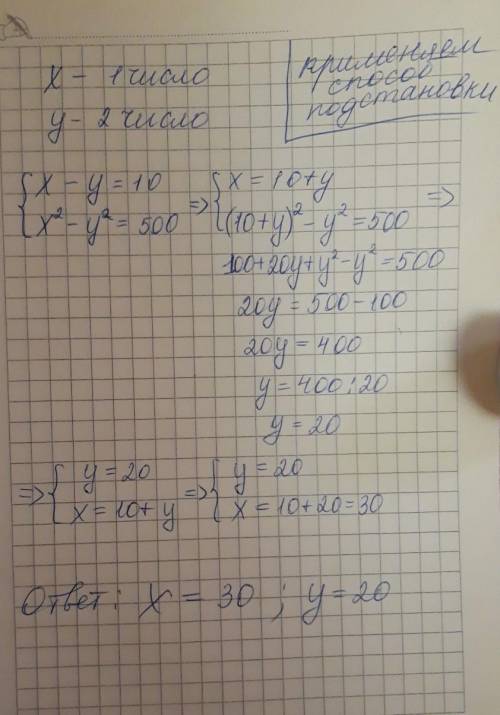 x - 1 число
y - 2 число
применяем
способ
подстановки
{ x - y = 10
x² - y² = 500
=> { x = 10 + y
(10 + y)² - y² = 500 =>
100 + 20y + y² - y² = 500
20y = 500 - 100
20y = 400
y = 400 : 20
y = 20
=> { y = 20
x = 10 + y
=> { y = 20
x = 10 + 20 = 30
Ответ: x = 30 ; y = 20